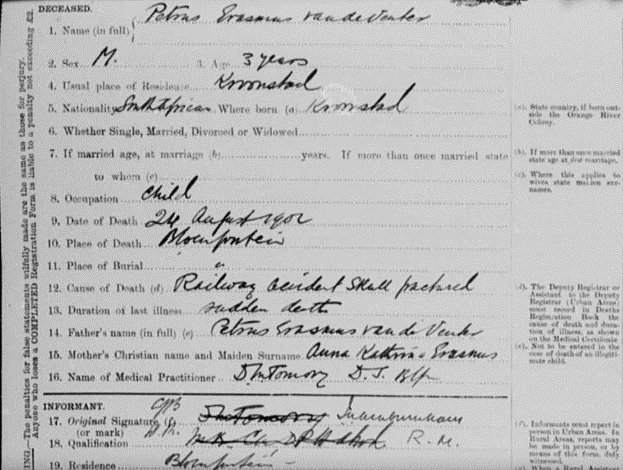 DECEASED.
1. Name (in full) Petrus Erasmus van de Venter
2. Sex M. 3. Age 3 years
4. Usual place of Residence Kroonstad
5. Nationality South African Where born (a) Kroonstad
6. Whether Single, Married, Divorced or Widowed
7. If married age, at marriage (b) years. If more than once married state
to whom (c)
8. Occupation Child
9. Date of Death 24 August 1902
10. Place of Death Bloemfontein
11. Place of Burial "
12. Cause of Death (d) Railway accident Skull fractured
13. Duration of last illness sudden death
14. Father's name (in full) (e) Petrus Erasmus van de Venter
15. Mother's Christian name and Maiden Surname Anna Kathrina Erasmus
16. Name of Medical Practitioner
INFORMANT.
17. Original Signature (f)
(or mark)
18. Qualification R. M.
19. Residence Bloemfontein
(a). State country, if born outside
the Orange River
Colony.
(b). If more than once married
state age at first marriage.
(c). Where this applies to
wives state maiden surnames.
(d). The Deputy Registrar or
Assistant to the Deputy
Registrar (Urban Areas)
must record in Deaths
Registration Book the
cause of death and duration
of illness, as shown
on the Medical Certificate.
(e). Not to be entered in the
case of death of an illegitimate
child.
(f). Informants must report in
person in Urban Areas. In
Rural Areas, reports may
be made in person, or by
means of this form, duly
witnessed.
The penalties for false statements wilfully made are the same as those for perjury.
Anyone who loses a COMPLETED Registration Form is liable to a penalty not exceeding £2.